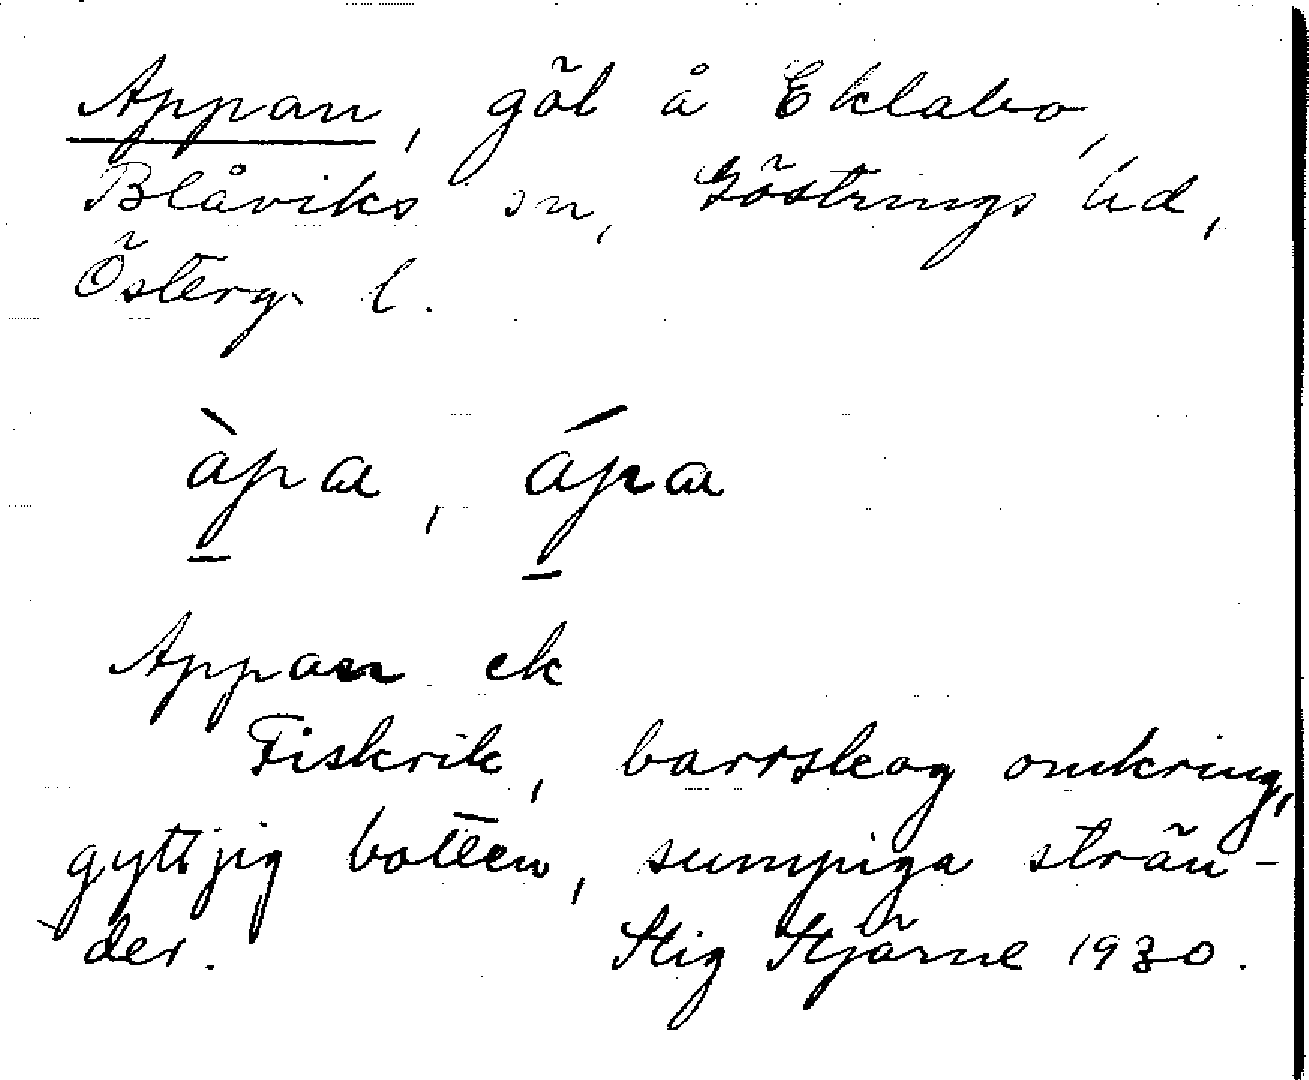 Appan, göl å Eklabo,
Blåviks sn, Göstrings hd,
Österg. l.
àpa, ápa
Appan ek
Fiskrik, barrskog omkring,
gyttjig botten, sumpiga strän-
der. Stig Stjärne 1930.